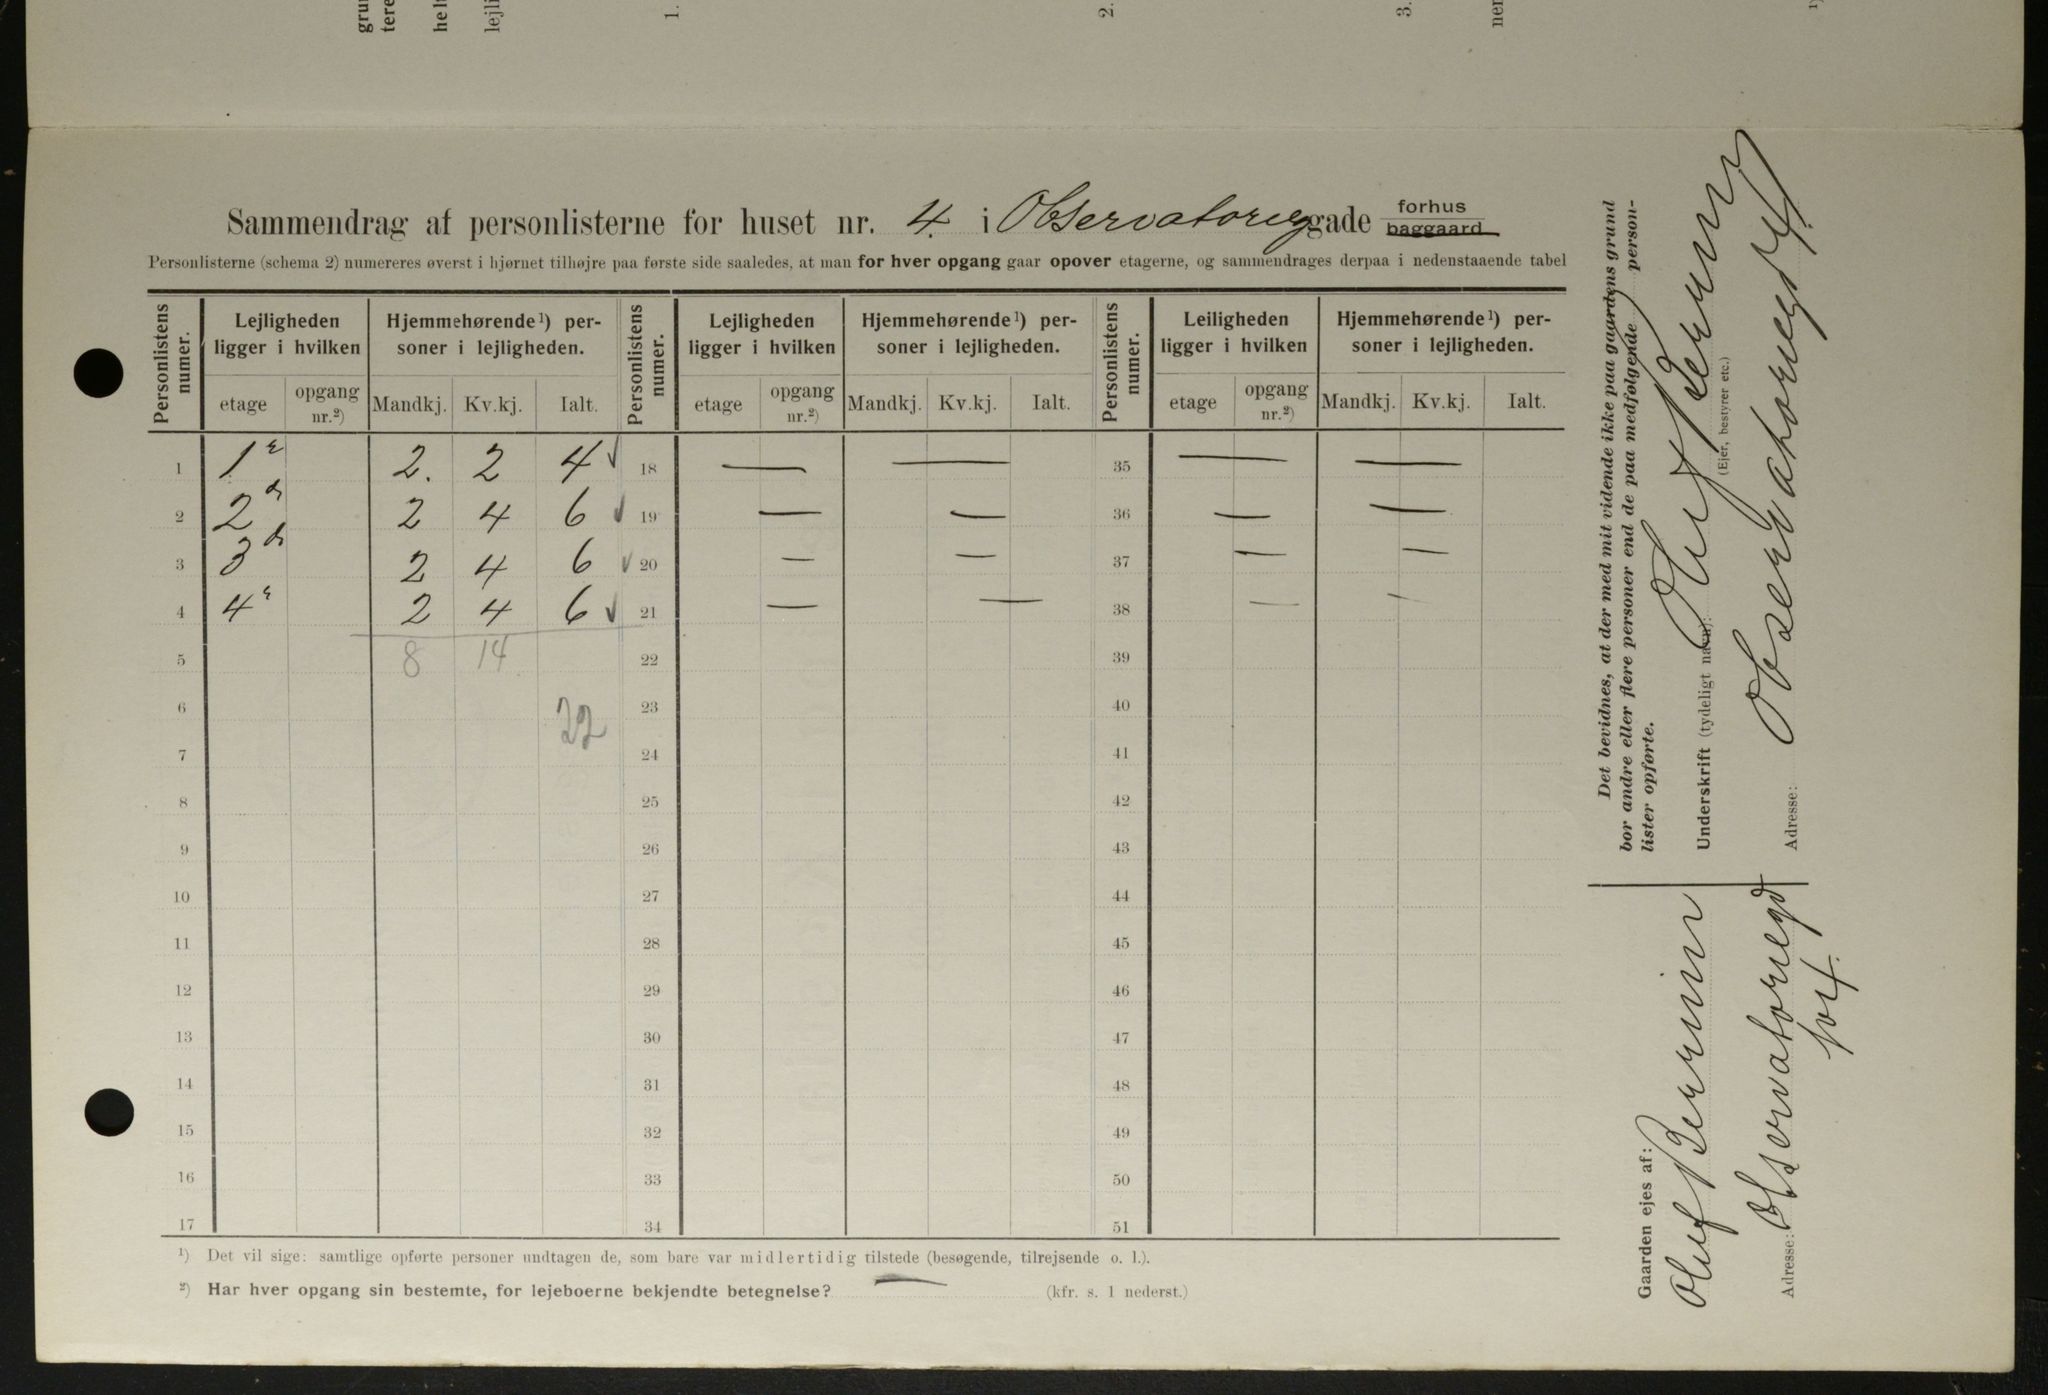 grun
tere
hels
lejli
1.
2.
3.
ner
1)
Sammendrag af personlisterne for huset nr. 4. i Observatoriegade forhus
baggaard
Personlisterne (schema 2) numereres øverst i hjørnet tilhøjre paa første side saaledes, at man for hver opgang gaar opover etagerne, og sammendrages derpaa i nedenstaaende tabel
Personlistens numer. Lejligheden ligger i hvilken Hjemmehørende¹) personer i lejligheden. Personlistens numer. Lejligheden ligger i hvilken Hjemmehørende¹) personer i lejligheden. Personlistens numer. Leiligheden ligger i hvilken Hjemmehørende¹) personer i lejligheden.
etage opgang nr.²) Mandkj. Kv.kj. Ialt. etage opgang nr.²) Mandkj. Kv.kj. Ialt. etage opgang nr.²) Mandkj. Kv.kj. Ialt.
1 1e 2. 2 4 ✓ 18 — — 35 — —
2 2d 2 4 6 ✓ 19 — — 36 — —
3 3d 2 4 6 ✓ 20 — — 37 — —
4 4e 2 4 6 ✓ 21 — — 38 — —
5 8 14 22 39
6 22 23 40
7 24 41
8 25 42
9 26 43
10 27 44
11 28 45
12 29 46
13 30 47
14 31 48
15 32 49
16 33 50
17 34 51
¹) Det vil sige: samtlige opførte personer undtagen de, som bare var midlertidig tilstede (besøgende, tilrejsende o. l.).
²) Har hver opgang sin bestemte, for lejeboerne bekjendte betegnelse? — (kfr. s. 1 nederst.)
Det bevidnes, at der med mit vidende ikke paa gaardens grund
bor andre eller flere personer end de paa medfølgende person-
lister opførte.
Underskrift (tydeligt navn):
(Ejer, bestyrer etc.)
Adresse: Observatoriegd 4.
Gaarden ejes af:
Oluf
Adresse: Observatoriegd
No 4.